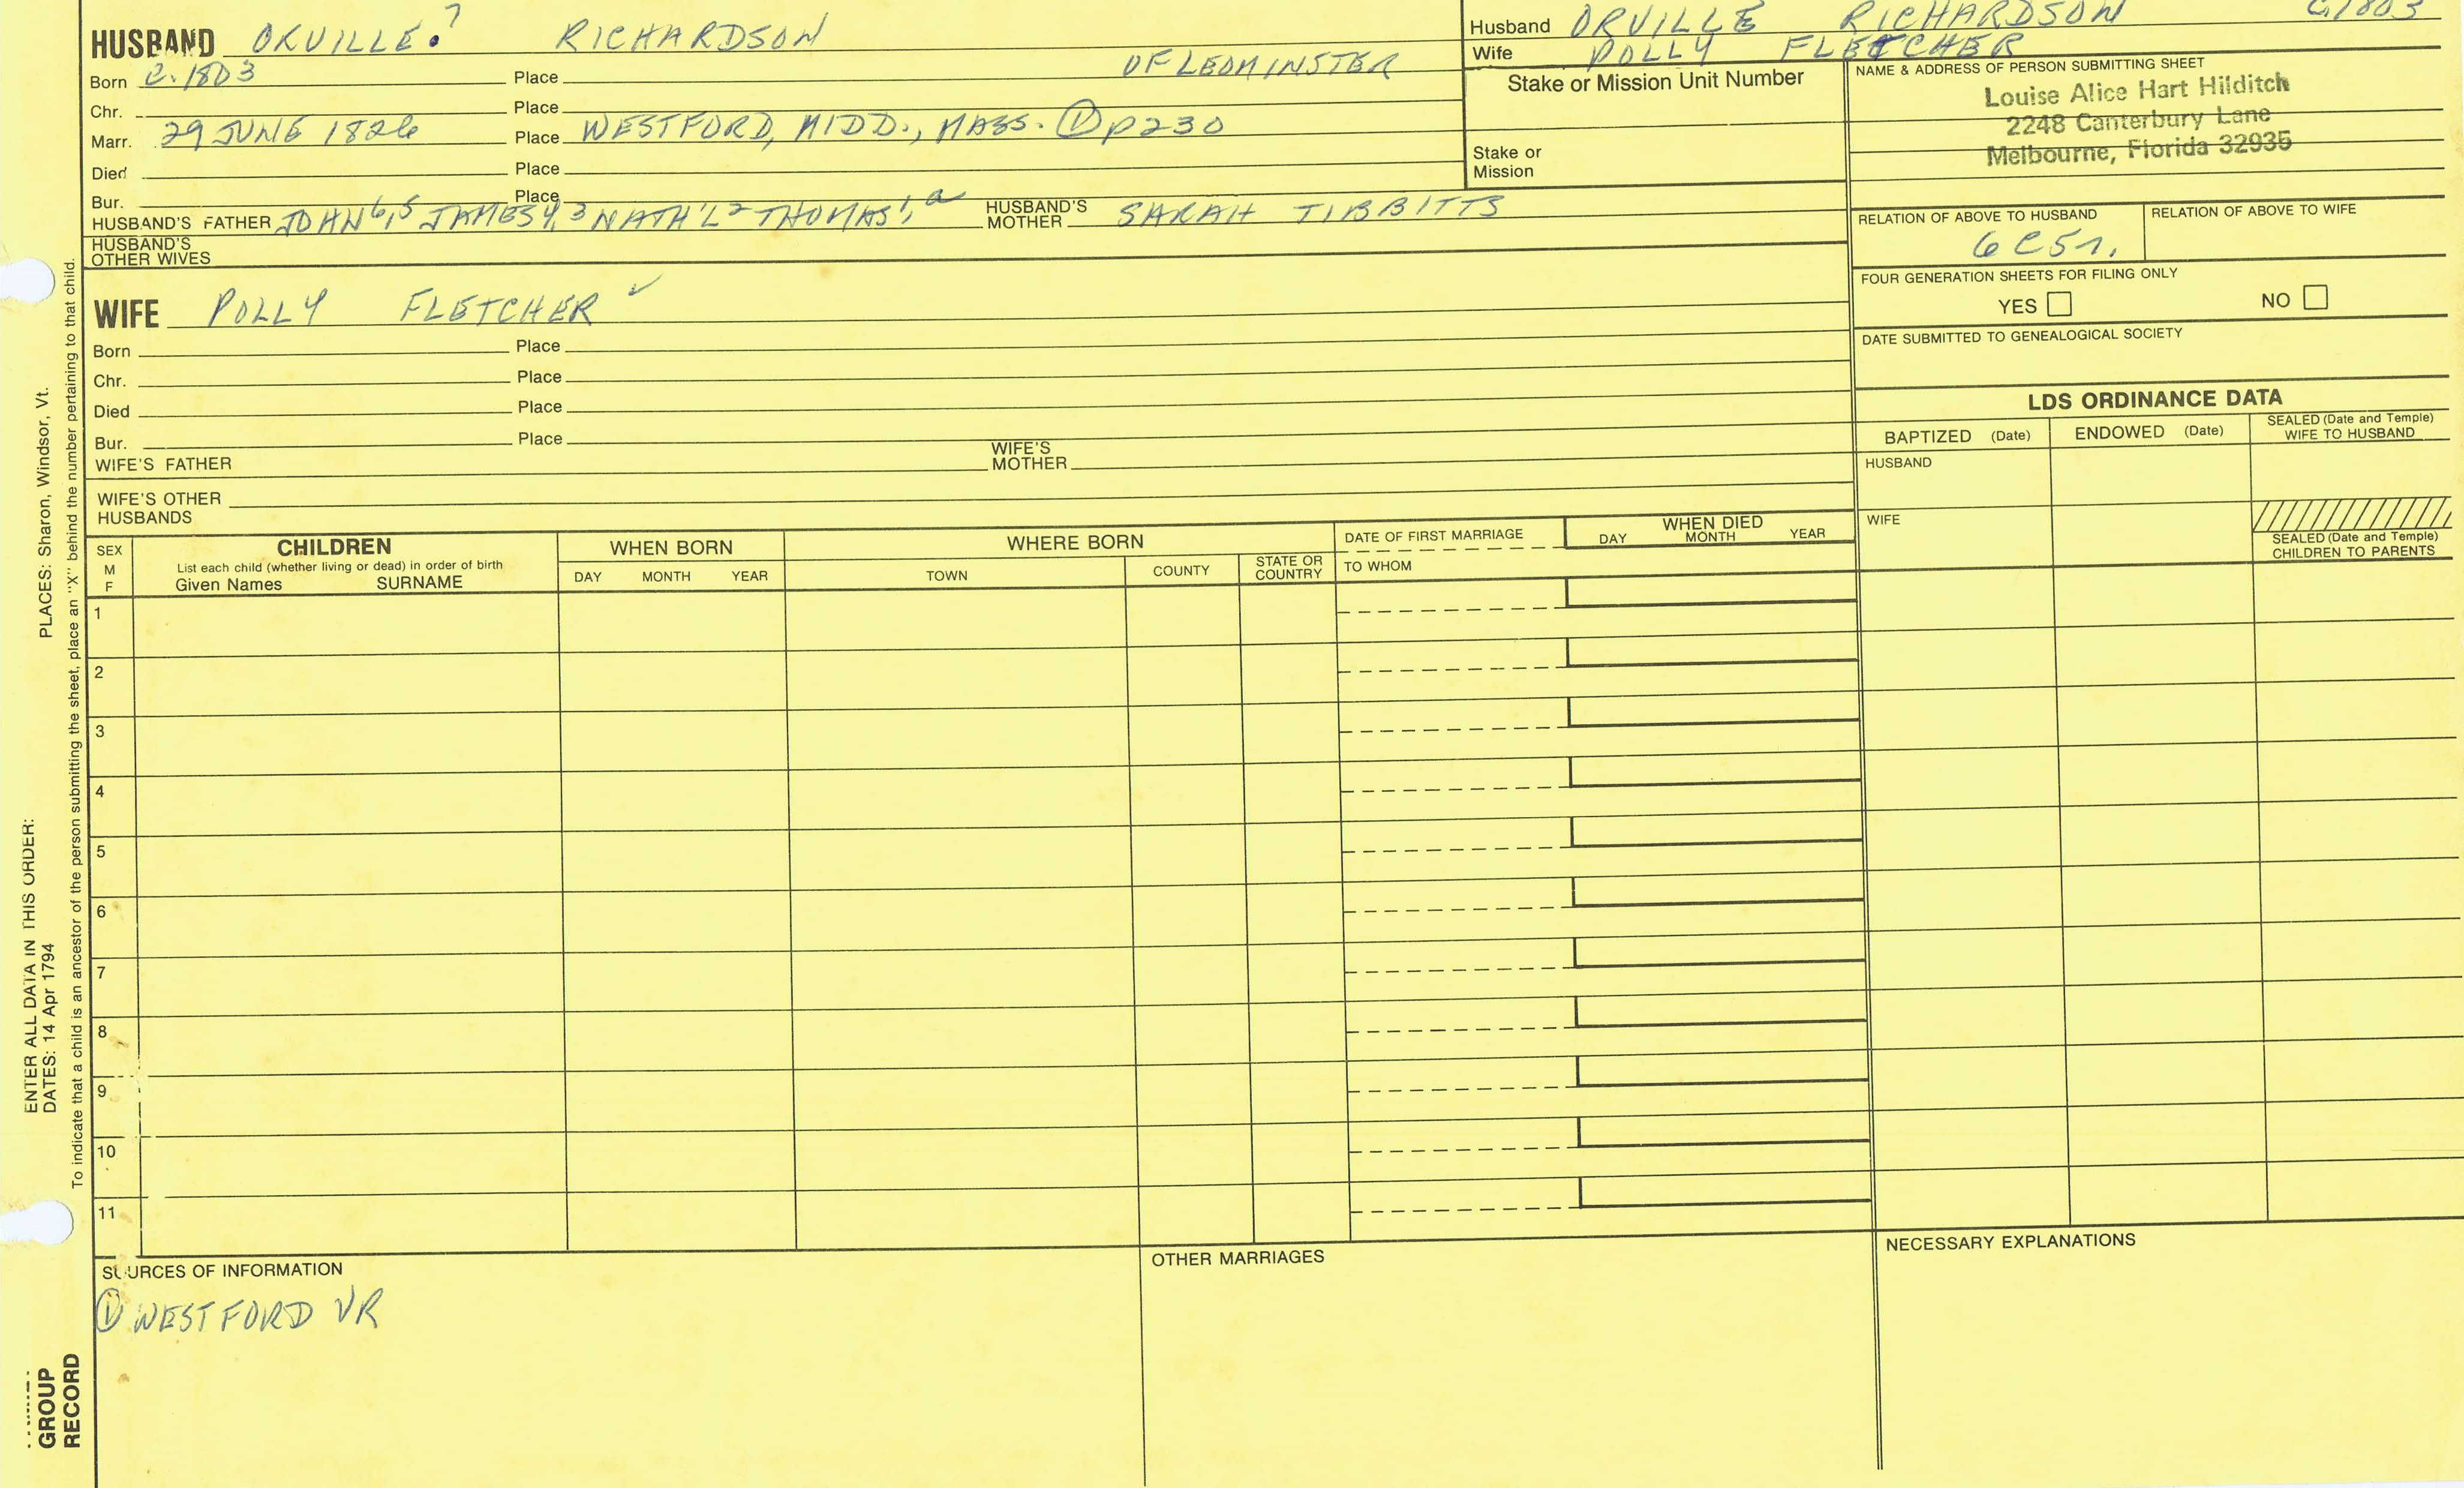 HUSBAND ORVILLE.? RICHARDSON
Born C. 1803 Place OF LEOMINSTER
Chr. Place
Marr. 29 JUNE 1826 Place WESTFORD, MIDD., MASS. ① p230
Died Place
Bur. Place
HUSBAND'S FATHER JOHN 6,5 JAMES 4,3 NATH'L 2 THOMAS 1, a HUSBAND'S MOTHER SARAH TIBBITTS
HUSBAND'S
OTHER WIVES
Husband ORVILLE RICHARDSON C.1803
Wife POLLY FLETCHER
Stake or Mission Unit Number
Stake or
Mission
NAME & ADDRESS OF PERSON SUBMITTING SHEET
Louise Alice Hart Hilditch
2248 Canterbury Lane
Melbourne, Florida 32935
RELATION OF ABOVE TO HUSBAND RELATION OF ABOVE TO WIFE
6C5r.
FOUR GENERATION SHEETS FOR FILING ONLY
YES NO
DATE SUBMITTED TO GENEALOGICAL SOCIETY
WIFE POLLY FLETCHER ✓
Born Place
Chr. Place
Died Place
Bur. Place
WIFE'S FATHER WIFE'S MOTHER
WIFE'S OTHER
HUSBANDS
LDS ORDINANCE DATA
BAPTIZED (Date) ENDOWED (Date) SEALED (Date and Temple) WIFE TO HUSBAND
HUSBAND
WIFE
SEALED (Date and Temple)
CHILDREN TO PARENTS
SEX
M
F
CHILDREN
List each child (whether living or dead) in order of birth
Given Names SURNAME
WHEN BORN
DAY MONTH YEAR
WHERE BORN
TOWN COUNTY STATE OR COUNTRY
DATE OF FIRST MARRIAGE
TO WHOM
WHEN DIED
DAY MONTH YEAR
1
2
3
4
5
6
7
8
9
10
11
SOURCES OF INFORMATION
① WESTFORD VR
OTHER MARRIAGES
NECESSARY EXPLANATIONS
ENTER ALL DATA IN THIS ORDER:
DATES: 14 Apr 1794 PLACES: Sharon, Windsor, Vt.
To indicate that a child is an ancestor of the person submitting the sheet, place an "X" behind the number pertaining to that child.
GROUP
RECORD